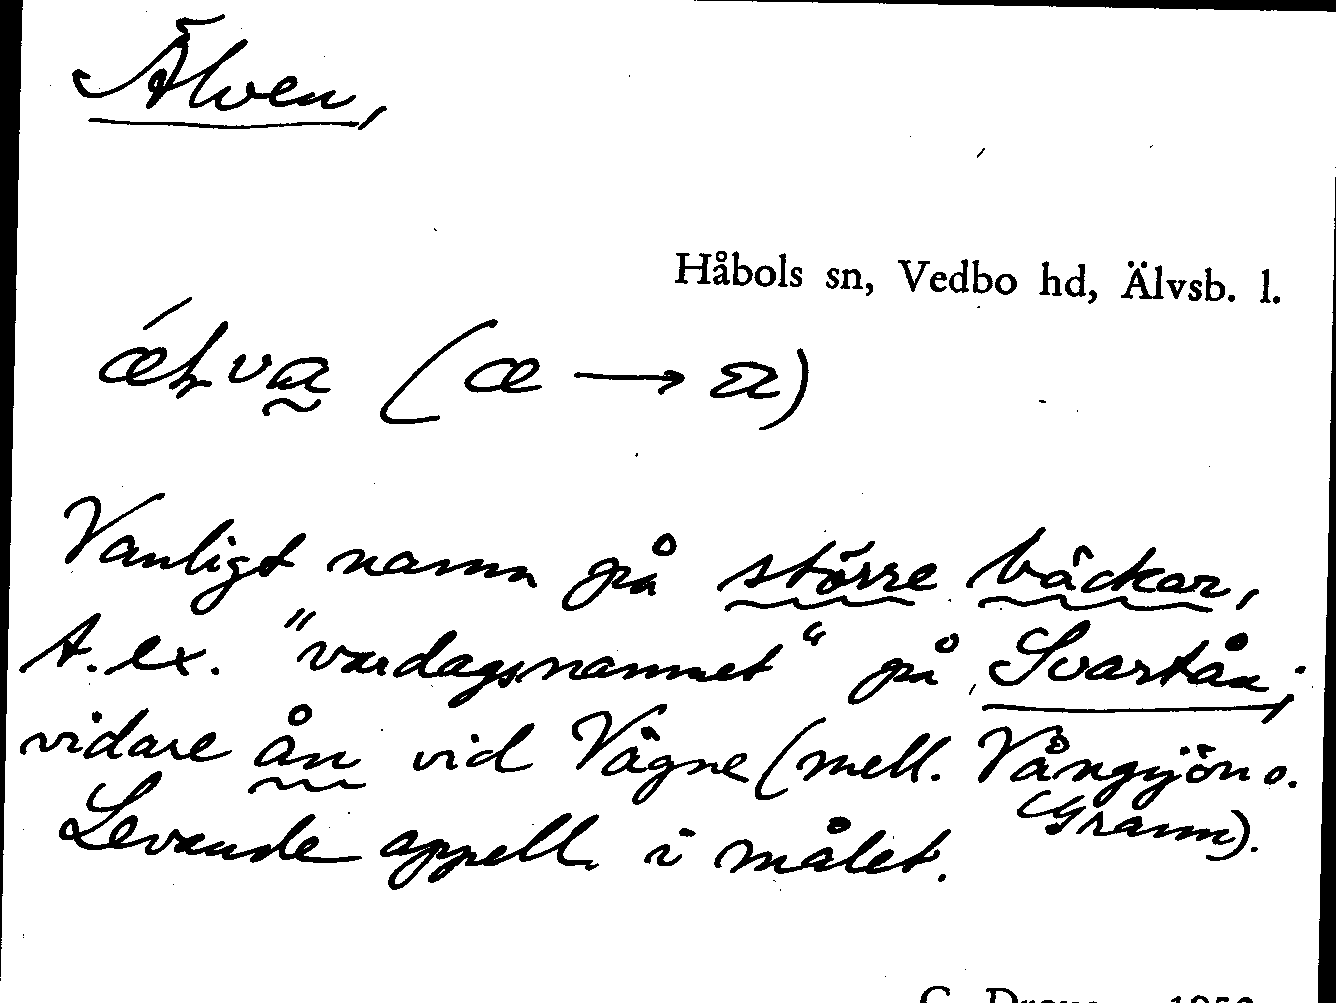 Älven,
Håbols sn, Vedbo hd, Älvsb. l.
Vanligt namn på större bäckar,
t. ex. "vardagsnamnet" på Svartån;
vidare ån vid Vägne (mell. Vångsjön o.
Grann).
Levande appell. i målet.